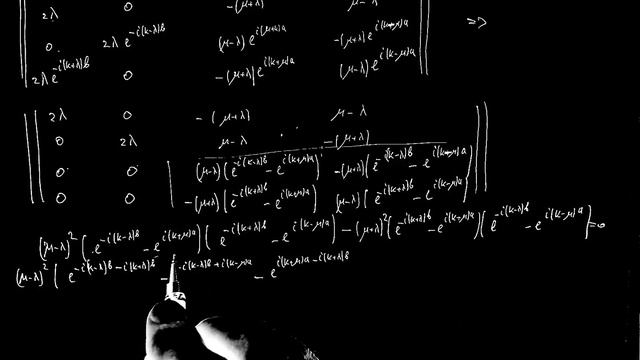 2λ 0 -(μ+λ) μ-λ
0 2λ e^{-i(k-λ)b} (μ-λ) e^{i(k+μ)a} -(μ+λ) e^{i(k-μ)a} =>
2λ e^{-i(k+λ)b} 0 -(μ+λ) e^{i(k+μ)a} (μ-λ) e^{i(k-μ)a}
2λ 0 -(μ+λ) μ-λ
0 2λ μ-λ -(μ+λ)
0 0 (μ-λ)(e^{-i(k-λ)b} - e^{i(k+μ)a}) -(μ+λ)(e^{-i(k-λ)b} - e^{i(k-μ)a})
0 0 -(μ+λ)(e^{-i(k+λ)b} - e^{i(k+μ)a}) (μ-λ)(e^{-i(k+λ)b} - e^{i(k-μ)a})
(μ-λ)^2 (e^{-i(k-λ)b} - e^{i(k+μ)a})(e^{-i(k+λ)b} - e^{i(k-μ)a}) - (μ+λ)^2 (e^{-i(k+λ)b} - e^{i(k-μ)a})(e^{-i(k-λ)b} - e^{i(k-μ)a}) = 0
(μ-λ)^2 (e^{-i(k-λ)b - i(k+λ)b} - e^{-i(k-λ)b + i(k-μ)a} - e^{i(k+μ)a - i(k+λ)b}